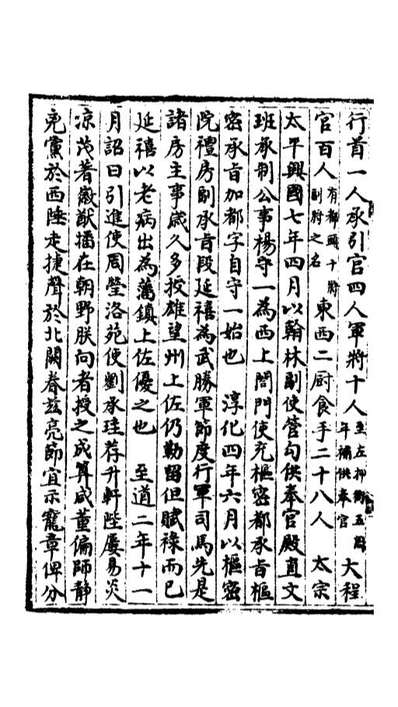 行首一人承引官四人軍將十人至左押衙五周年補供奉官 大程
官百人有都頭十將副尉之名 東西二厨食手二十八人 太宗
太平興國七年四月以翰林副使管勾供奉官殿直文
班承制公事楊守一為西上閤門使充樞密都承旨樞
密承旨加都字自守一始也 淳化四年六月以樞密
院禮房副承旨段延禧為武勝軍節度行軍司馬先是
諸房主事歲久多授雄望州上佐仍勒留但賦祿而已
延禧以老病出為藩鎮上佐優之也 至道二年十一
月詔曰引進使周瑩洛苑使劉承珪荐升軒陛屢易炎
凉茂著徽猷播在朝野朕向者授之成算咸董偏師靜
兇黨於西陲走捷聲於北闕眷茲亮節宜示寵章俾分